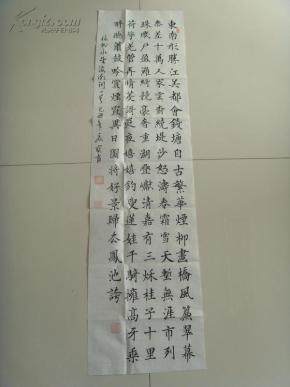 東南形勝江吳都會錢塘自古繁華煙柳畫橋風簾翠幕
參差十萬人家雲樹繞堤沙怒濤卷霜雪天塹無涯市列
珠璣戶盈羅綺競豪奢重湖疊巘清嘉有三秋桂子十里
荷花羌管弄晴菱歌泛夜嬉嬉釣叟蓮娃千騎擁高牙乘
醉聽簫鼓吟賞煙霞異日圖將好景歸去鳳池誇
柳永望海潮詞一首己丑年